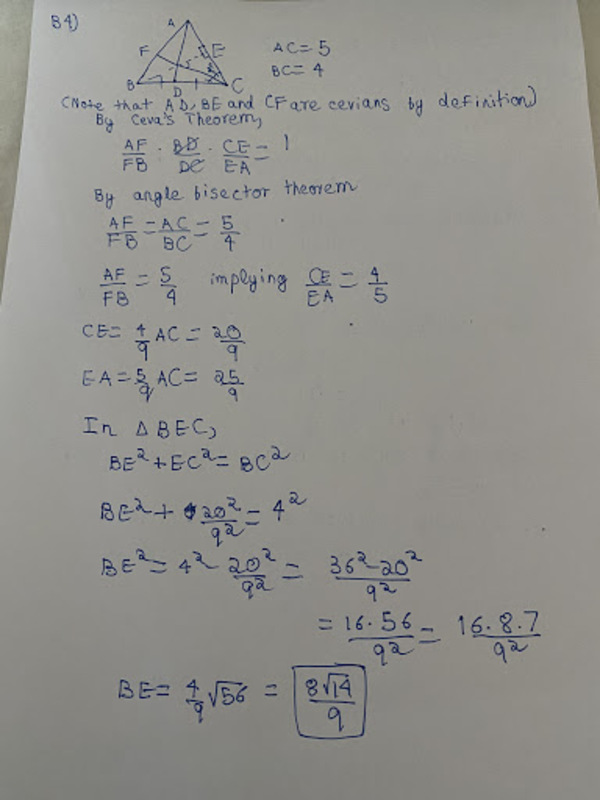 B4)
A
F
E
B
D
C
AC=5
BC=4
(Note that AD, BE and CF are cevians by definition)
By Ceva's Theorem,
AF/FB · BD/DC · CE/EA = 1
By angle bisector theorem
AF/FB = AC/BC = 5/4
AF/FB = 5/4 implying CE/EA = 4/5
CE = 4/9 AC = 20/9
EA = 5/9 AC = 25/9
In △BEC,
BE²+EC²= BC²
BE² + 20²/9² = 4²
BE² = 4² - 20²/9² = 36²-20²/9²
= 16·56/9² = 16·8·7/9²
BE = 4/9 √56 = 8√14/9